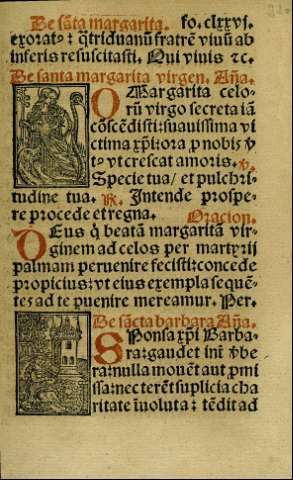 De sãta margarita. fo. clxxvi.
exorat⁹: ⁊ q̃triduanũ fratrẽ viuũ ab
inferis resuscitasti. Qui viuis ⁊c.
De santa margarita virgen. Aña.
O Margarita celo-
rũ virgo secreta iã
cõscẽdisti: suauissima vi
ctima xp̃i: ora ꝓ nobis ꝟ
t⁹ vt crescat amoris. ꝟ.
Specie tua / et pulchri-
tudine tua. R. Intende prospe-
re procede et regna. Oracion.
DEus q̃ beatã margaritã vir-
ginem ad celos per martyrii
palmam peruenire fecisti: concede
propicius: vt eius exempla sequẽ-
tes ad te puenire mereamur. Per.
De sãcta barbara Aña.
SPonsa xp̃i Barba-
ra: gaudet inĩ ꝟbe
ra: nulla mouẽt aut ꝓmi
ssa: nec terẽt suplicia cha
ritate ĩuoluta: tẽdit ad